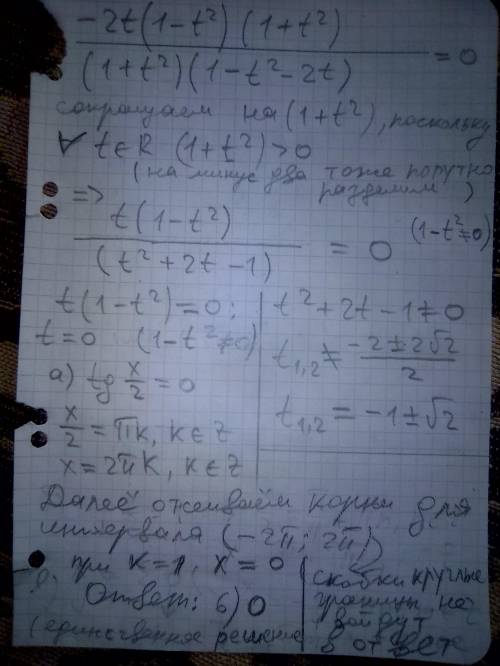 -2t(1-t²)(1+t²)
(1+t²)(1-t²-2t) = 0
сокращаем на (1+t²), поскольку
∀ t∈R (1+t²)>0
(на минус два тоже попутно
разделим)
=>
t(1-t²)
(t²+2t-1) = 0 (1-t²≠0)
t(1-t²)=0:
t=0 (1-t²≠0)
а) tg x/2 = 0
x/2 = πk, k∈Z
x=2πk, k∈Z
t²+2t-1≠0
t₁,₂ ≠ -2±2√2 / 2
t₁,₂ = -1±√2
Далее отсеиваем корни для
интервала (-2π; 2π)
при k=1, x=0
Ответ: б) 0
(единственное решение
скобки круглые
границы не
войдут
в ответ